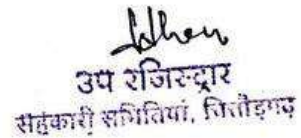 उप रजिस्ट्रार
सहकारी समितियां, चित्तौड़गढ़